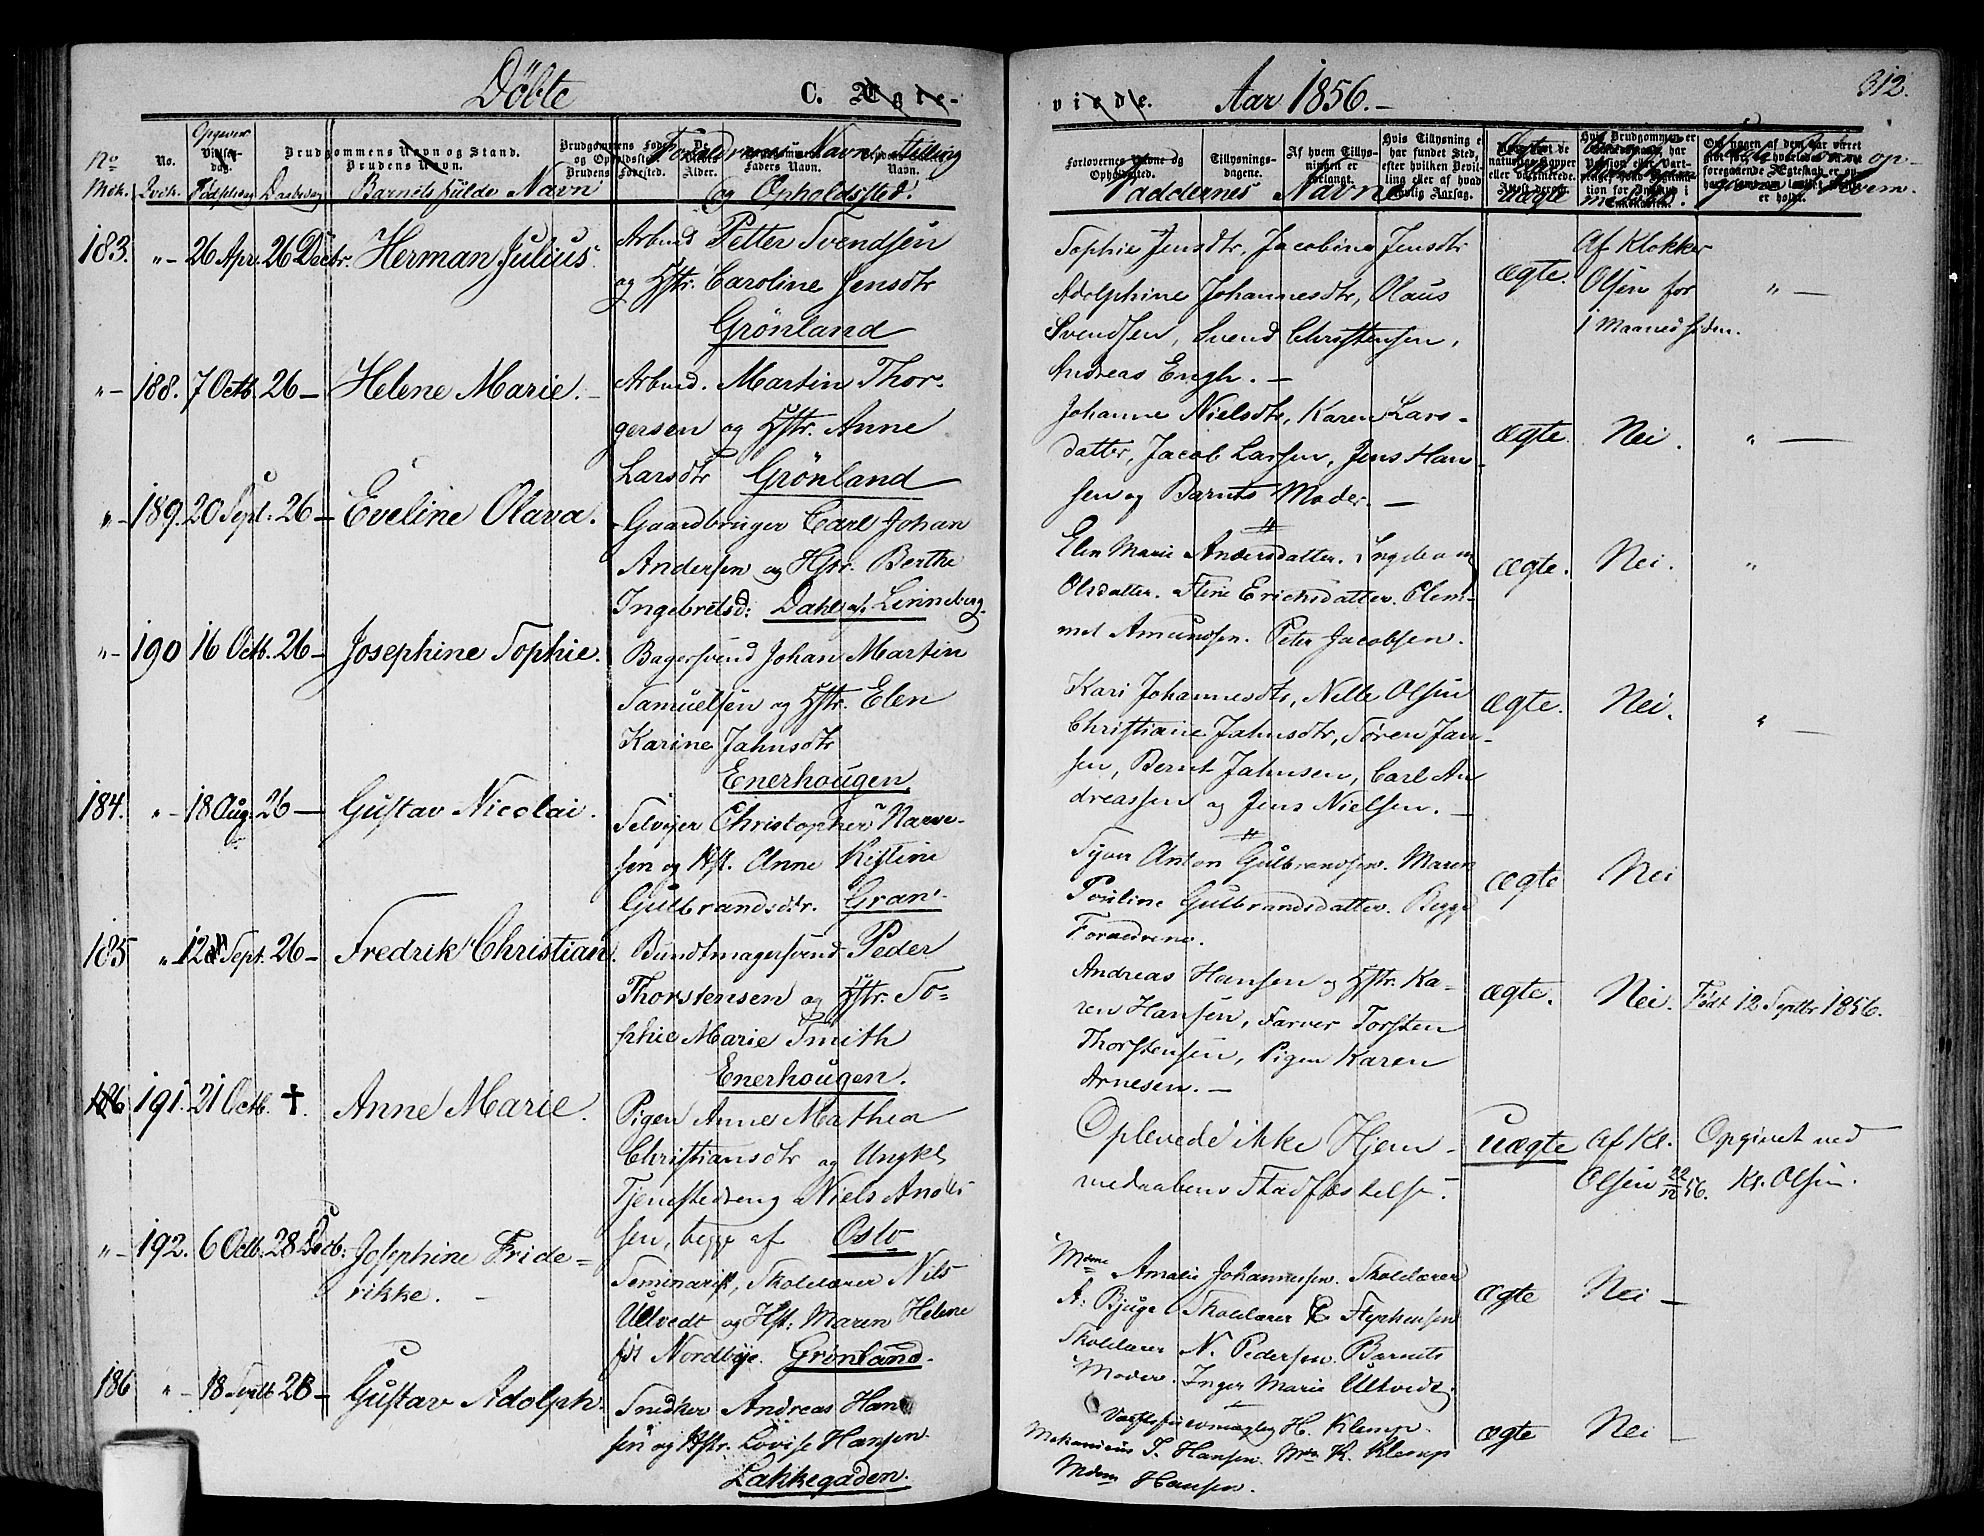 Döbte C. Ægte-
viede. Aar 1856.- 312.
No. Mdk. No. Qvk. Fødselsdag Daabsdag
Brudgommens Navn og Stand.
Brudens Navn.
Barnets fulde Navn
Forældrenes Navn Stilling
og Opholdsted.
Faddernes Navne
Forlovernes Navne og Opholdssted.
Tillysnings-dagene.
Ægte
uægte
183. "- 26 Apr. 26 Decbr. Herman Julius.
Arbmd Petter Svendsen
og Hstr. Caroline Jensdtr
Grönland
Sophie Jensdtr, Jacobine Jensdtr
Adolphine Johannesdtr, Olaus
Svendsen, Svend Christensen,
Andreas Engh. -
ægte.
Af Klokker
Olsen for
1 Maaned siden.
" -
"- 188. 7 Octb. 26 - Helene Marie. -
Arbmd. Martin Thor-
gersen og Hstr. Anne
Larsdtr Grönland
Johanne Nielsdtr, Karen Lars-
datter, Jacob Larsen, Jens Han-
sen og Barnets Moder. -
ægte. Nei. " -
"- 189. 20 Sept. 26 - Eveline Olava.
Gaardbruger Carl Johan
Andersen og Hstr. Berthe
Ingebretsd: Dahl af Linneberg.
Elen Marie Andersdatter.
Olsdatter. Stine Erichsdatter. Clem-
met Amundsen. Peter Jacobsen.
ægte. Nei. "
"- 190 16 Octb. 26 - Josephine Sophie.
Bagersvend Johan Martin
Samuelsen og Hstr. Elen
Karine Jahnsdtr
Enerhougen
Kari Johannesdtr, Nille Olsen
Christiane Jahnsdtr, Søren Jan-
sen, Bernt Jahnsen, Carl An-
dreassen og Jens Nielsen. -
ægte. Nei. " -
184. "- 18 Aug. 26 - Gustav Nicolai.
Selveier Christopher Narve-
sen og Hst. Anne Kistine
Gulbrandsdtr. Gran.
Anton Gulbrandsen. Maren
Pouline Gulbrandsdatter. Begge
Forældrene.
ægte Nei
185 "- 12 Sept. 26 - Fredrik Christian.
Bundtmagersvend Peder
Thorstensen og Hstr. So-
phie Marie Smith
Enerhougen.
Andreas Hansen og Hstr. Ka-
ren Hansen, Farver Torsten
Thorstensen, Pigen Karen
Arnesen. -
ægte. Nei. Født 12 Septbr 1856.
186 191. 21 Octb. †. Anne Marie.
Pigen Anne Mathea
Christiansdtr og Ungkl
Tjenestedreng Niels
sen, begge af Oslo
Oplevede ikke Hjem-
medaabens Stadfæstelse.
uægte
Af Kl.
Olsen 22/12 56.
Opgivet ved
Kl. Olsen.
"- 192. 6 Octb. 28 Decb: Josephine Fride-
rikke. -
Seminarist, Skolelærer Nils
Ultvedt og Hst: Maren Helene
f. Nordbye. Grønland.
Mdme Amalie Johannessen. Skolelærer
A. Bjuge Skolelærer C Stephensen
Skolelærer N. Pedersen. Barnets
Moder. Inger Marie Ultvedt
ægte Nei -
186 "- 18 Septb 28 - Gustav Adolph.
Snedker Andreas Han
sen og Hstr. Lovise Hansen
Lakkegaden.
H. Klemp.
Mekanicus T. Hansen. Mm K. Klemp
Mdm Hansen.
ægte Nei -